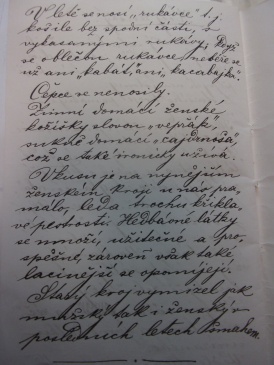 V létě se nosí „rukávce" t. j.
košile bez spodní části, s
vykasanými rukávy. Když
se oblečou rukávce, nebéře se
už ani „kabát", ani „kacabajka".
Čepce se nenosily.
Zimní domácí ženské
kožíšky slovou „vepřák",
sukně domácí „cajdrnoša",
což se také ironicky užívá.
Vkusu je na nynějším
ženském kroji u nás pra-
málo, leda trochu křikla-
vé pestrosti. Hedbávné látky
se množí, užitečné a pro-
spěšné, zároveň však také
lacinější se opomíjejí.
Starý kroj vymizel jak
mužský tak i ženský v
posledních letech pomahem.